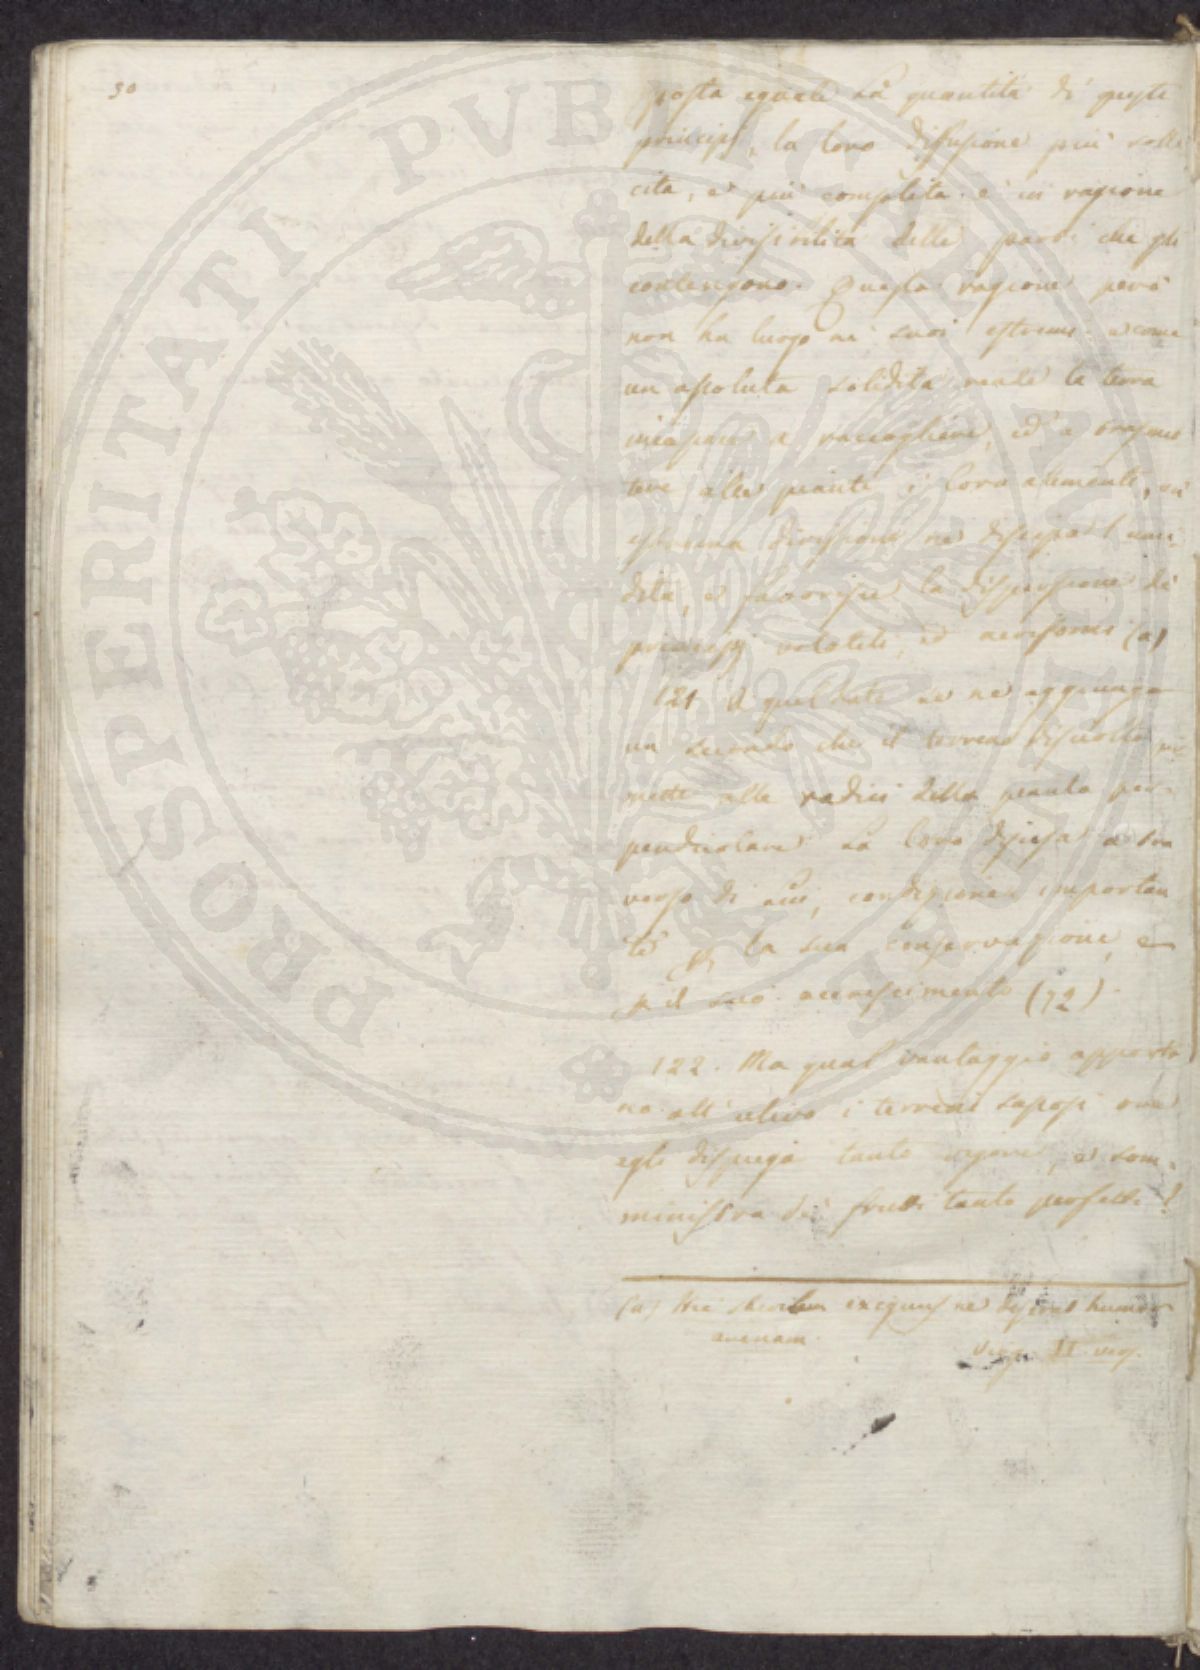 50
posta eguale la quantità di queste
principj, la loro diffusione più solle
cita, e più completa è in ragione
della divisibilità delle parti che gli
contengono. Questa ragione però
non ha luogo ne' suoi estremi e come
un assoluta solidità rende la terra
incapace a raccogliere, ed a trasmet
tere alle piante i loro alimenti, un
estrema divisione ne dissipa l'umi
dità, e favorisce la dispersione de
principj volatili, ed aeriformi (a)
121 A quel dato se ne aggiunga
un secondo che il terreno disciolto per
mette alle radici della pianta per-
pendicolare la loro discesa a tra
verso di lui, condizione importan
te per la sua conservazione, e
p il suo accrescimento (72).
122. Ma qual vantaggio apporta
no all'ulivo i terreni sassosi ove
egli dispiega tanto vigore, e som-
ministra dei frutti tanto perfetti?
(a) Hic sterilem exiguus ne deserat humor
arenam.
Virg. II
PROSPERITATI PVBLICAE AVGENDAE